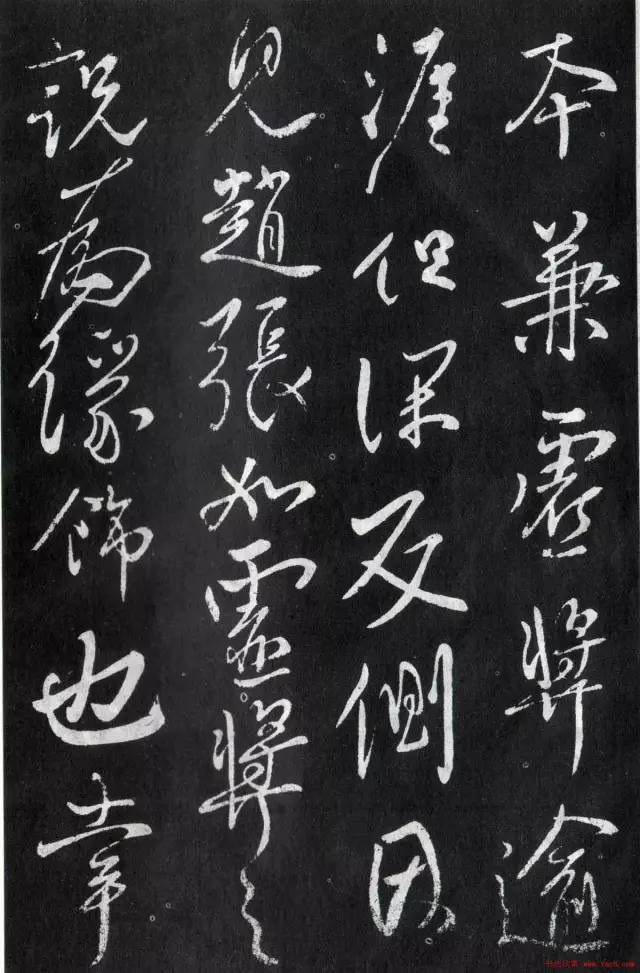 本兼虛獎逾
涯但深反側因
見趙張如虛獎之
說為緣飾也幸
书法欣赏 www.yac8.com